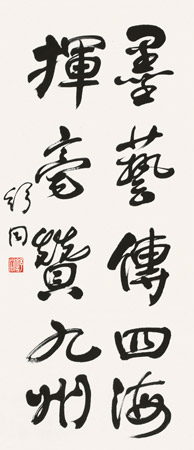 墨藝傳四海
揮毫贊九州
舒同